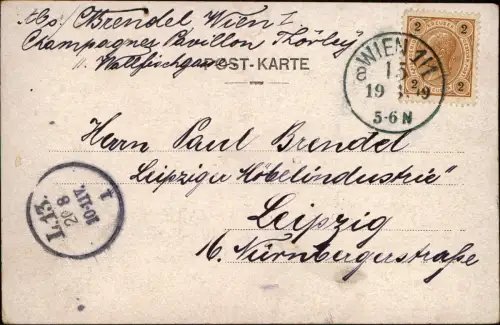 Abs. C. Brendel Wien I
Champagner Pavillon "Thörley"
11. Wallfischgasse
POST-KARTE
WIEN 1/1
a
15
19
9
5-6 N
2 2
2 2
Herrn Paul Brendel
Leipziger Möbelindustrie
Leipzig
16. Nürnbergerstraße
L.13.
20
8
10-11V.
1